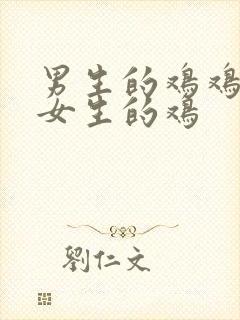 男生的鸡鸡
女生的鸡
劉仁文